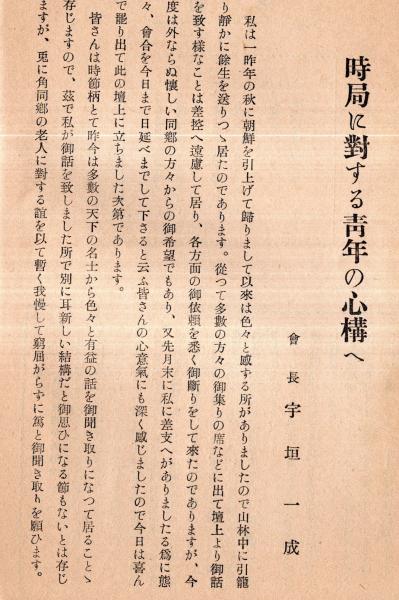 時局に對する靑年の心構へ
會長 宇垣一成
私は一昨年の秋に朝鮮を引上げて歸りまして以來は色々と感ずる所がありましたので山林中に引籠
り靜かに餘生を送りつゝ居たのであります。從つて多數の方々の御集りの席などに出て壇上より御話
を致す樣なことは差控へ遠慮して居り、各方面の御依賴を悉く御斷りをして來たのでありますが、今
度は外ならぬ懷しい同鄕の方々からの御希望でもあり、又先月末に私に差支へがありましたる爲に態
々、會合を今日まで日延べまでして下さると云ふ皆さんの心意氣にも深く感じましたので今日は喜ん
で罷り出て此の壇上に立ちました次第であります。
皆さんは時節柄とて昨今は多數の天下の名士から色々と有益の話を御聞き取りになつて居ることゝ
存じますので、茲で私が御話を致しました所で別に耳新しい結構だと御思ひになる節もないとは存じ
ますが、兎に角同鄕の老人に對する誼を以て暫く我慢して窮屈がらずに篤と御聞き取りを願ひます。